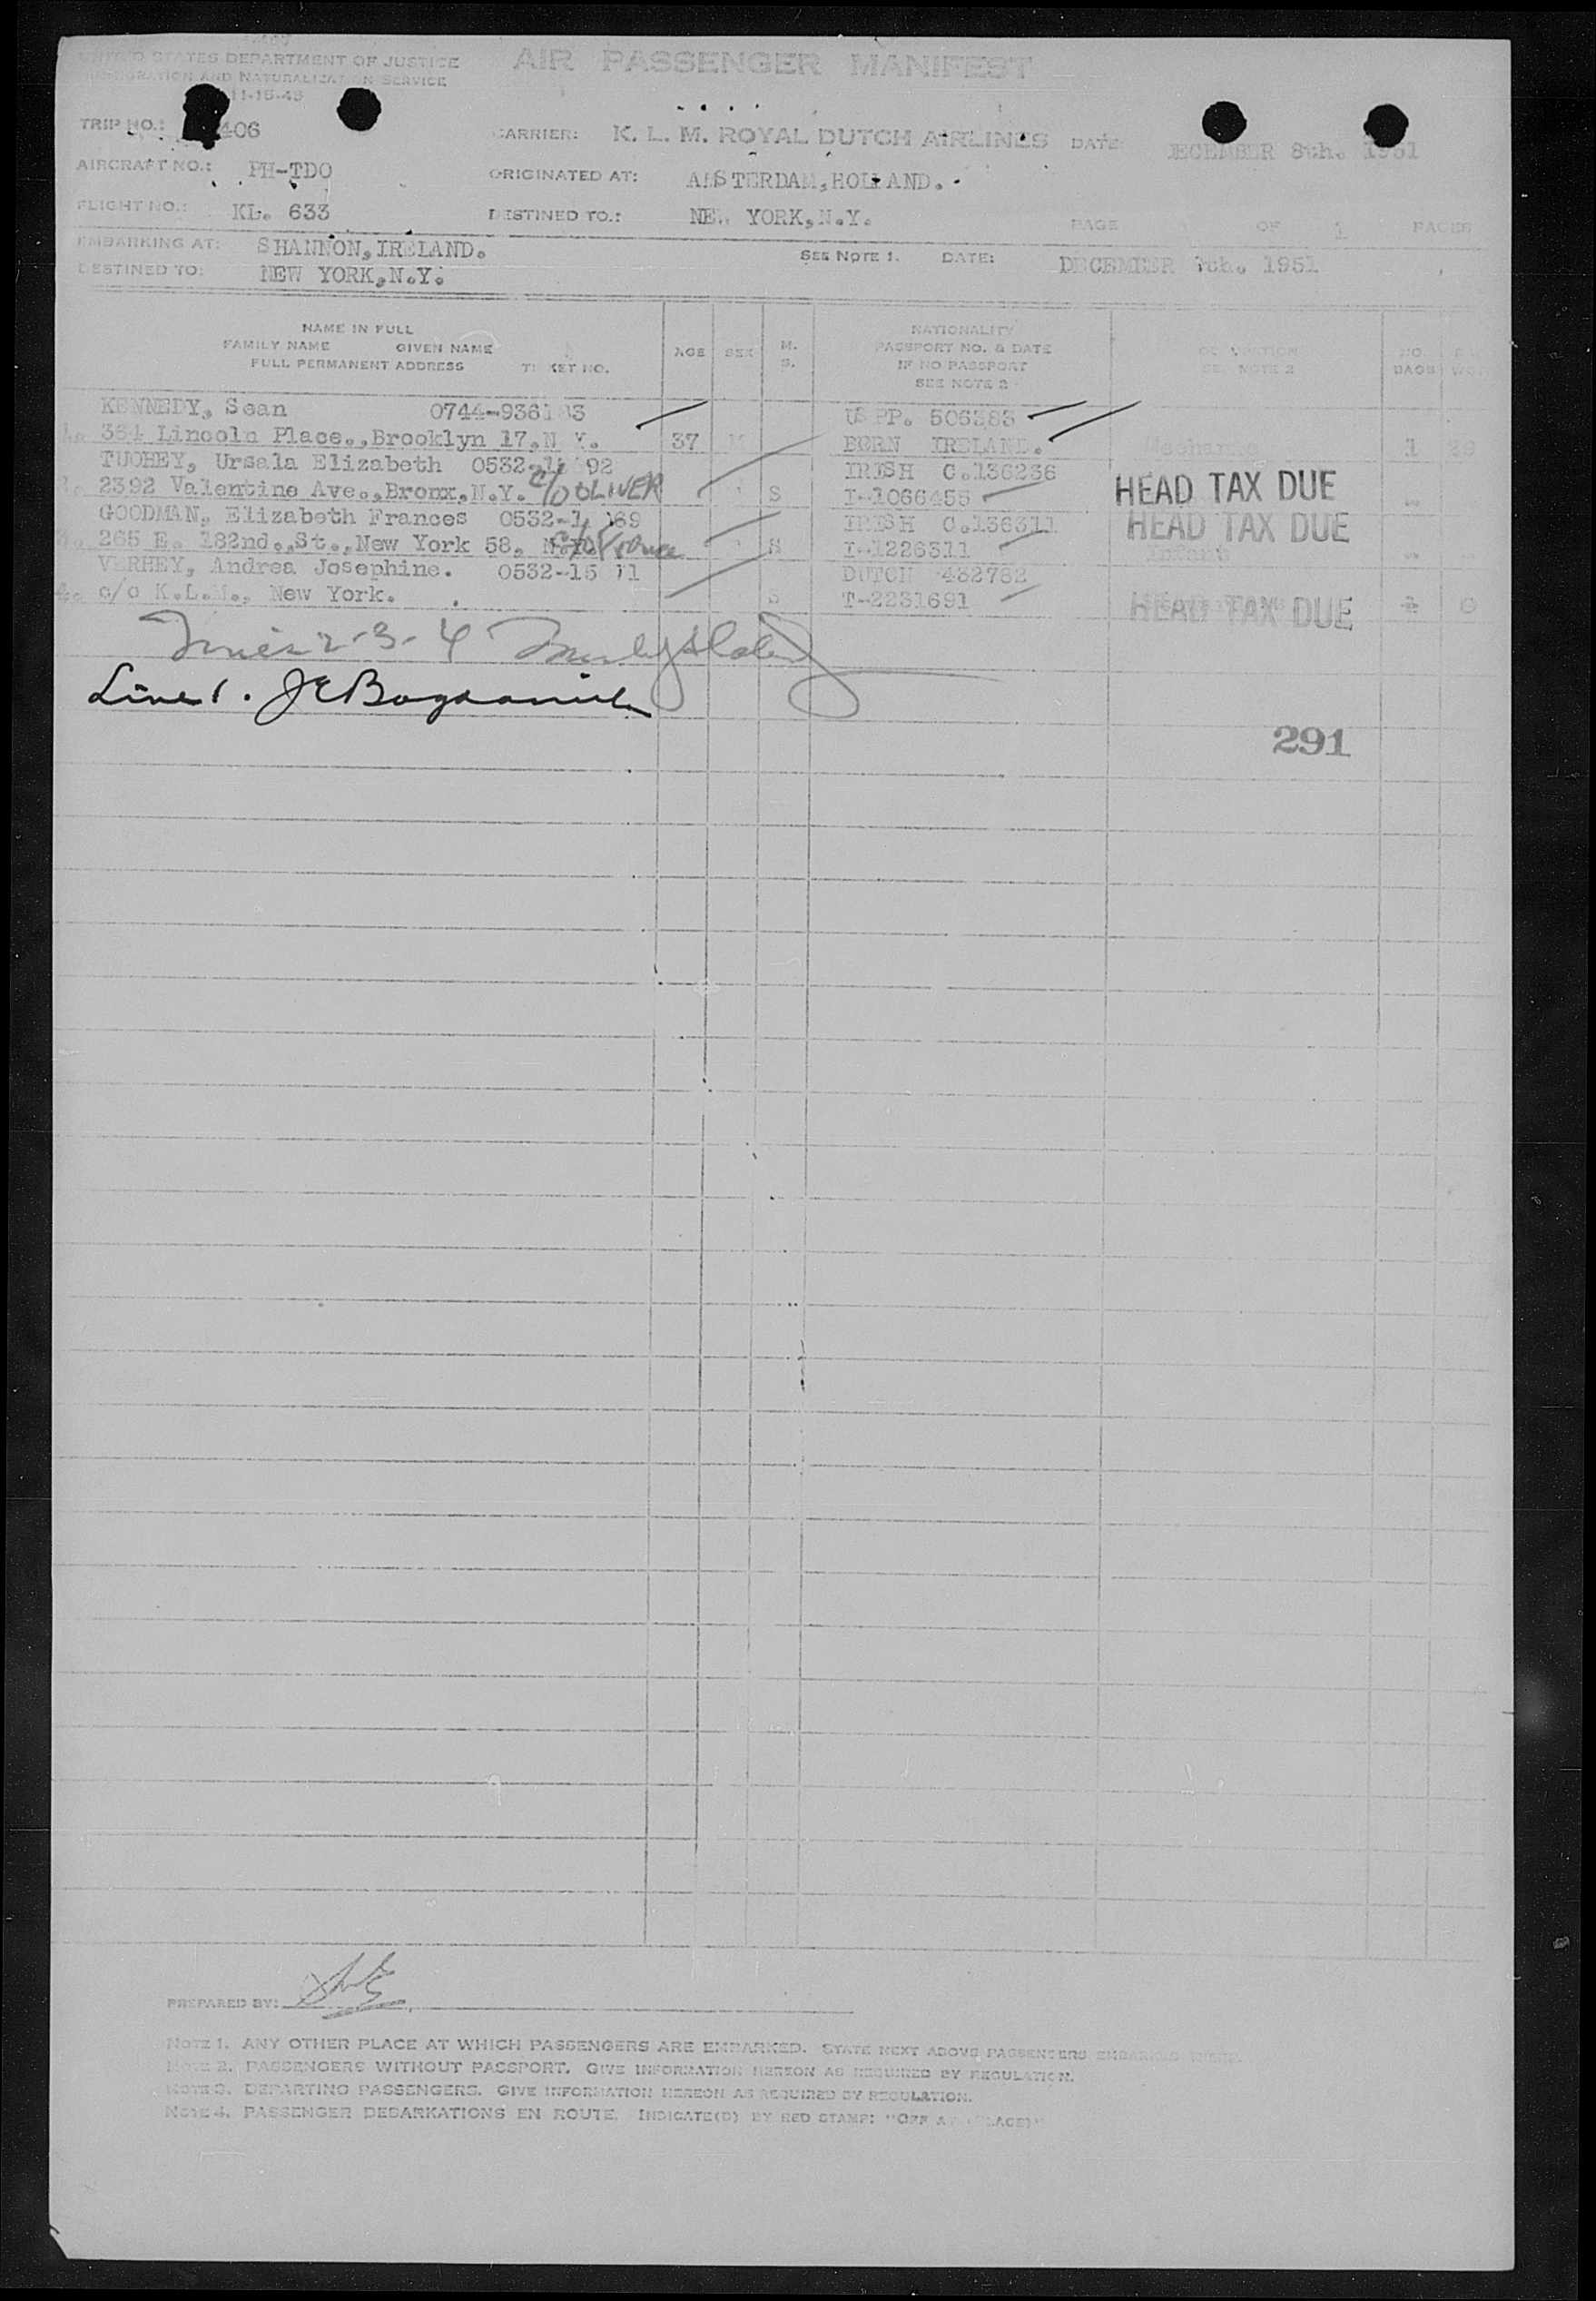 UNITED STATES DEPARTMENT OF JUSTICE
AIR PASSENGER MANIFEST
IMMIGRATION AND NATURALIZATION SERVICE
11-15-45
TRIP NO.: 406
CARRIER: K. L. M. ROYAL DUTCH AIRLINES DATE: DECEMBER 8th. 1951
AIRCRAFT NO.: PH-TDO
ORIGINATED AT: AMSTERDAM, HOLLAND.
FLIGHT NO.: KL. 633
DESTINED TO.: NEW YORK, N.Y.
PAGE OF 1 PAGES
EMBARKING AT: SHANNON, IRELAND.
SEE NOTE 1. DATE: DECEMBER 1951
DESTINED TO: NEW YORK, N.Y.
NAME IN FULL
FAMILY NAME GIVEN NAME
FULL PERMANENT ADDRESS TICKET NO.
AGE SEX M. S.
NATIONALITY
PASSPORT NO. & DATE
IF NO PASSPORT
SEE NOTE 2
OCCUPATION
SEE NOTE 2
NO. BAGS
KENNEDY, Sean 0744-936 3 US PP. 506383
1. 364 Lincoln Place., Brooklyn 17, N.Y. 37 BORN IRELAND. 1
TUOHEY, Ursala Elizabeth 0532- 92 IRISH C.136236
2. 2392 Valentine Ave., Bronx, N.Y. c/o OLIVER S T-1066455 HEAD TAX DUE
GOODMAN, Elizabeth Frances 0532-1 69 IRISH C.136311 HEAD TAX DUE
3. 265 E. 182nd., St., New York 58. N.Y. c/o S T-1226311 Infant
VERHEY, Andrea Josephine. 0532-15 11 DUTCH 432782
4. c/o K.L.M., New York. S T-2231691 HEAD TAX DUE 0
Lines 2-3-4
Line 1. JE
291
PREPARED BY:
NOTE 1. ANY OTHER PLACE AT WHICH PASSENGERS ARE EMBARKED. STATE NEXT ABOVE PASSENGERS EMBARKED THERE.
NOTE 2. PASSENGERS WITHOUT PASSPORT. GIVE INFORMATION HEREON AS REQUIRED BY REGULATION.
NOTE 3. DEPARTING PASSENGERS. GIVE INFORMATION HEREON AS REQUIRED BY REGULATION.
NOTE 4. PASSENGER DEBARKATIONS EN ROUTE. INDICATE(D) BY RED STAMP: "OFF AT (PLACE)"